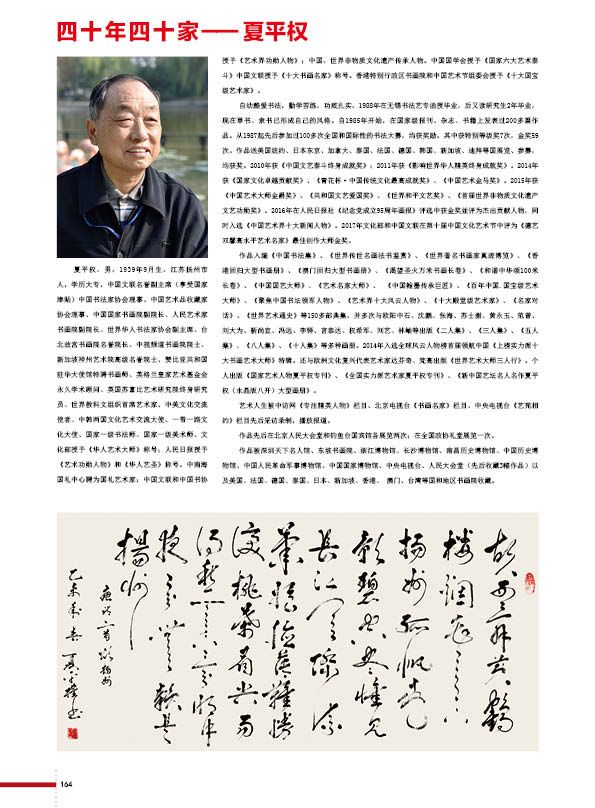 四十年四十家——夏平权
夏平权，男，1939年9月生，江苏扬州市
人，学历大专，中国文联名誉副主席（享受国家
津贴）中国书法家协会理事、中国艺术品收藏家
协会理事、中国国家书画院副院长、人民艺术家
书画院副院长、世界华人书法家协会副主席、台
北故宫书画院名誉院长、中视频道书画院院士、
新加坡神州艺术院高级名誉院士、赞比亚共和国
驻华大使馆特聘书画师、英格兰皇家艺术基金会
永久学术顾问、英国苏富比艺术研究院终身研究
员、世界教科文组织首席艺术家、中美文化交流
使者、中韩两国文化艺术交流大使、一带一路文
化大使、国家一级书法师、国家一级美术师、文
化部授予《华人艺术大师》称号；人民日报授予
《艺术功勋人物》和《华人艺圣》称号。中南海
国礼中心聘为国礼艺术家；中国文联和中国书协
授予《艺术界功勋人物》；中国、世界非物质文化遗产传承人物。中国国学会授予《国家六大艺术泰
斗》中国文联授予《十大书画名家》称号。香港特别行政区书画院和中国艺术节组委会授予《十大国宝
级艺术家》。
自幼酷爱书法，勤学苦练，功底扎实，1988年在无锡书法艺专函授毕业，后又读研究生2年毕业，
现在草书、隶书已形成自己的风格。自1985年开始，在国家级报刊、杂志、书籍上发表过200多篇作
品。从1987起先后参加过100多次全国和国际性的书法大赛，均获奖励。其中获特别等级奖7次，金奖59
次。作品送美国纽约、日本东京、加拿大、泰国、法国、德国、韩国、新加坡、迪拜等国展览、参赛，
均获奖。2010年获《中国文艺泰斗终身成就奖》；2011年获《影响世界华人精英终身成就奖》。2014年
获《国家文化卓越贡献奖》、《青花杯·中国传统文化最高成就奖》、《中国艺术金马奖》。2015年获
《中国艺术大师金爵奖》、《共和国文艺爱国奖》、《世界和平文艺奖》、《首届世界非物质文化遗产
文艺功勋奖》。2016年在人民日报社《纪念党成立95周年画报》评选中获金奖並评为杰出贡献人物，同
时入选《中国艺术界十大新闻人物》。2017年文化部和中国文联在第十届中国文化艺术节中评为《德艺
双馨高水平艺术名家》最佳创作大师金奖。
作品入编《中国书法集》、《世界传世名画法书鉴赏》、《世界著名书画家真迹博览》、《香
港回归大型书画册》、《澳门回归大型书画册》、《渴望圣火万米书画长卷》、《和谐中华颂100米
长卷》、《中国国艺大师》、《艺术名家大师》、《中国翰墨传承巨匠》、《百年中国.国宝级艺术
大师》、《聚焦中国书坛领军人物》、《艺术界十大风云人物》、《十大殿堂级艺术家》、《名家对
话》、《世界艺术通史》等150多部典集，并多次与欧阳中石、沈鹏、张海、苏士澍、黄永玉、范曾、
刘大为、靳尚宜、冯远、李铎、言恭达、权希军、刘艺、林岫等出版《二人集》、《三人集》、《五人
集》、《八人集》、《十人集》等多种画册。2014年入选全球风云物榜首届领航中国《上榜实力派十
大书画艺术大师》特辑。还与欧洲文化复兴代表艺术家达芬奇、梵高出版《世界艺术大师三人行》。个
人出版《国家艺术人物夏平权专刊》、《全国实力派艺术家夏平权专刊》、《新中国艺坛名人名作夏平
权（水晶版八开）大型画册》。
艺术人生被中访网《专注精英人物》栏目、北京电视台《书画名家》栏目、中央电视台《艺苑相
约》栏目先后采访录制，播放报道。
作品先后在北京人民大会堂和钓鱼台国宾馆各展览两次；在全国政协礼堂展览一次。
作品被深圳天下名人馆、东坡书画院、浙江博物馆、长沙博物馆、南昌历史博物馆、中国历史博
物馆、中国人民革命军事博物馆、中国国家博物馆、中央电视台、人民大会堂（先后收藏3幅作品）以
及美国、法国、德国、泰国、日本、新加坡、香港、澳门、台湾等国和地区书画院收藏。
164